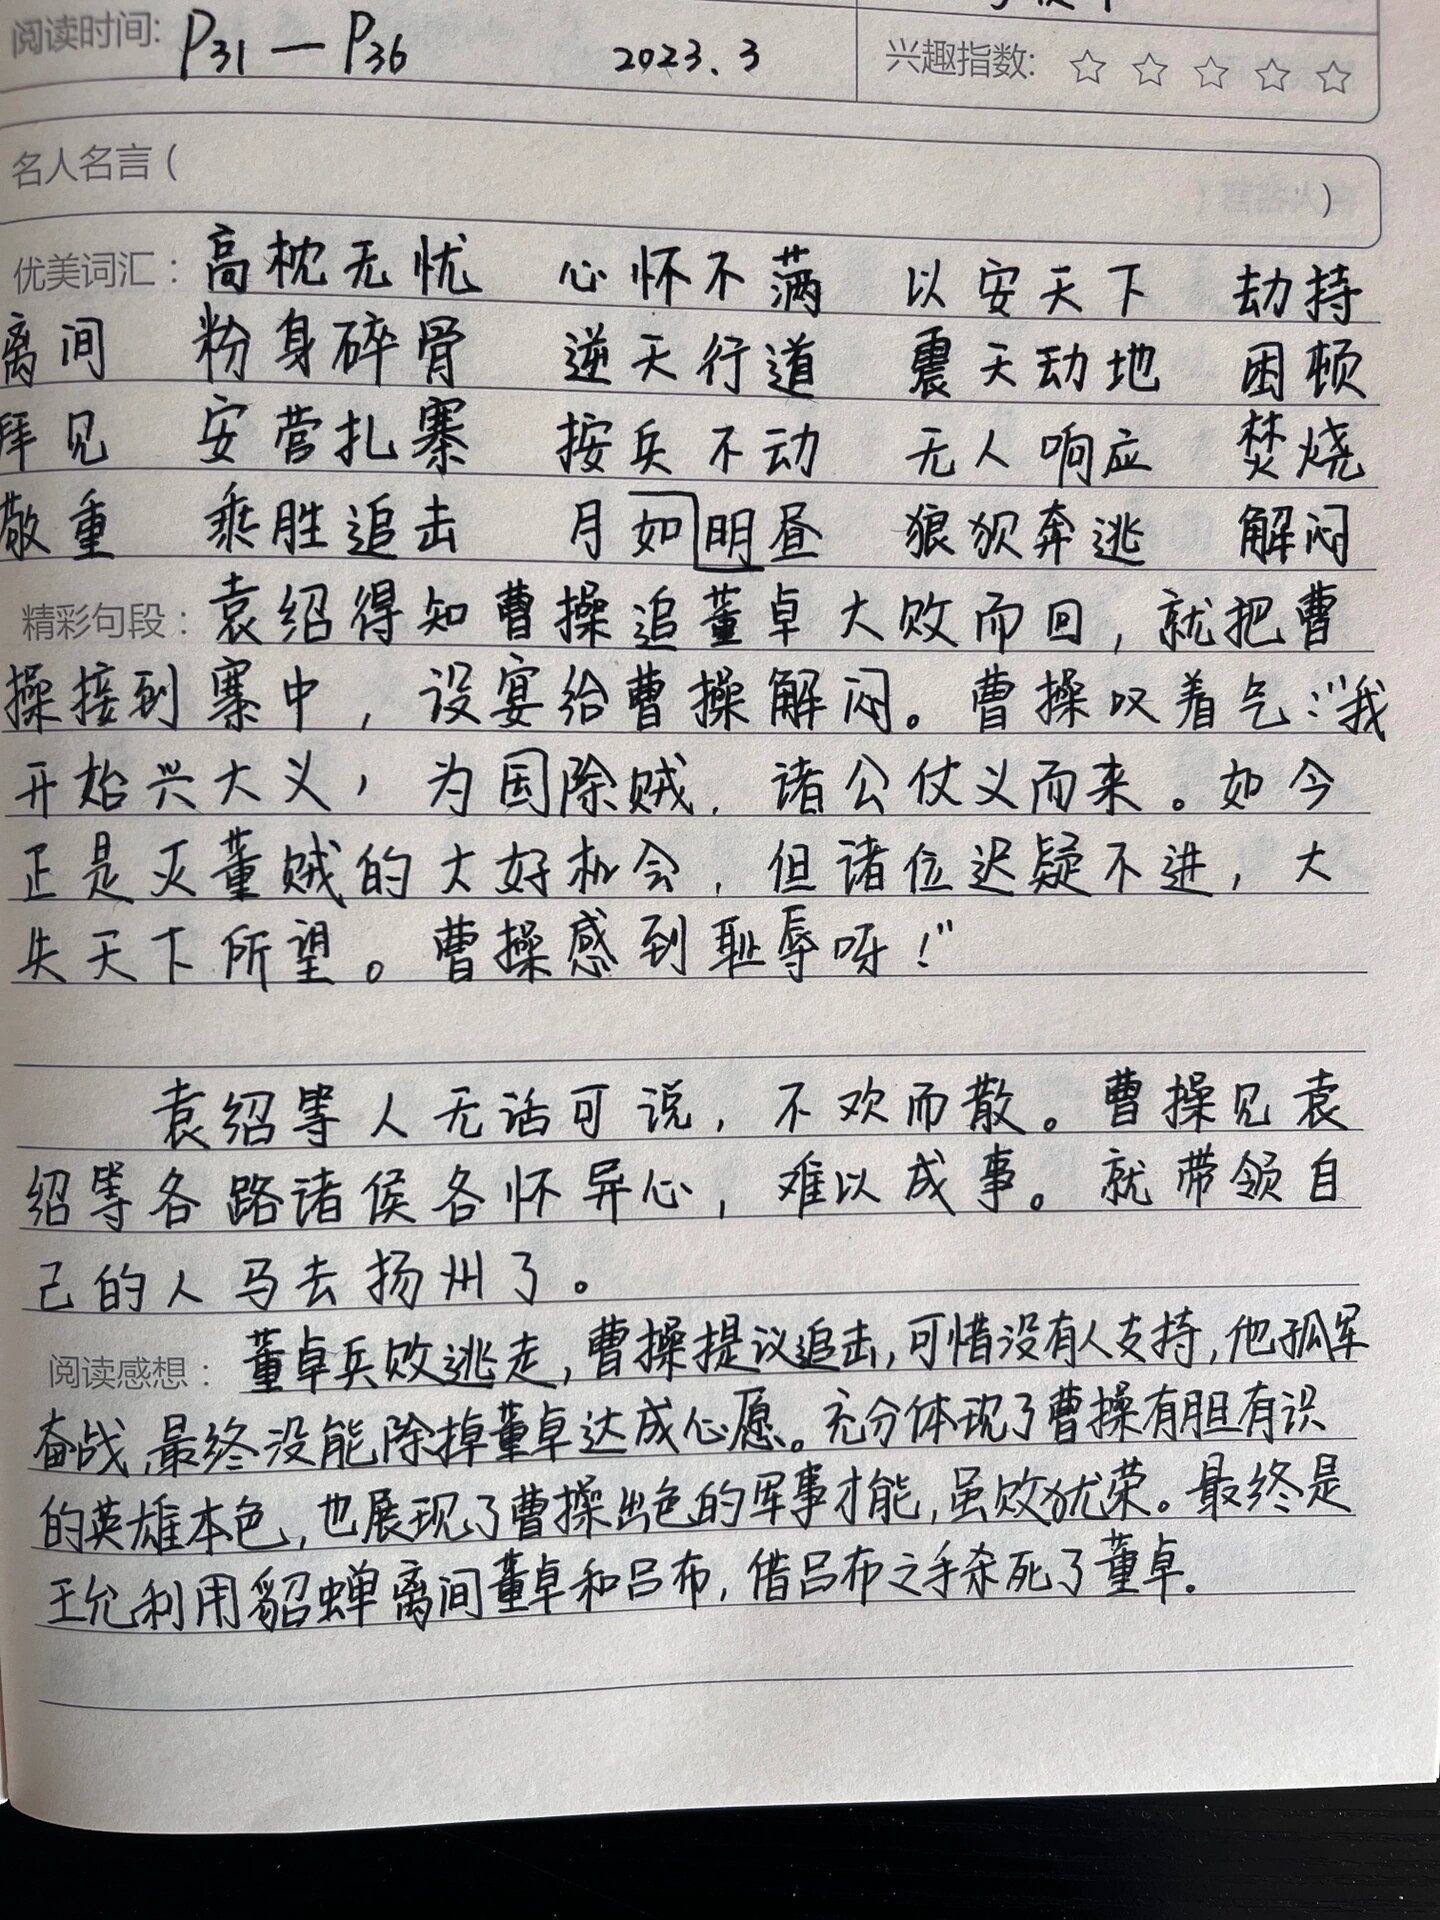 阅读时间: P31—P36 2023.3 兴趣指数: ☆ ☆ ☆ ☆ ☆
名人名言( )
优美词汇: 高枕无忧 心怀不满 以安天下 劫持
离间 粉身碎骨 逆天行道 震天动地 困顿
拜见 安营扎寨 按兵不动 无人响应 焚烧
敬重 乘胜追击 月如明昼 狼狈奔逃 解闷
精彩句段: 袁绍得知曹操追董卓大败而回,就把曹
操接到寨中,设宴给曹操解闷。曹操叹着气:“我
开始兴大义,为国除贼,诸公仗义而来。如今
正是灭董贼的大好机会,但诸位迟疑不进,大
失天下所望。曹操感到耻辱呀!”
袁绍等人无话可说,不欢而散。曹操见袁
绍等各路诸侯各怀异心,难以成事。就带领自
己的人马去扬州了。
阅读感想: 董卓兵败逃走,曹操提议追击,可惜没有人支持,他孤军
奋战,最终没能除掉董卓达成心愿。充分体现了曹操有胆有识
的英雄本色,也展现了曹操出色的军事才能,虽败犹荣。最终是
王允利用貂蝉离间董卓和吕布,借吕布之手杀死了董卓.